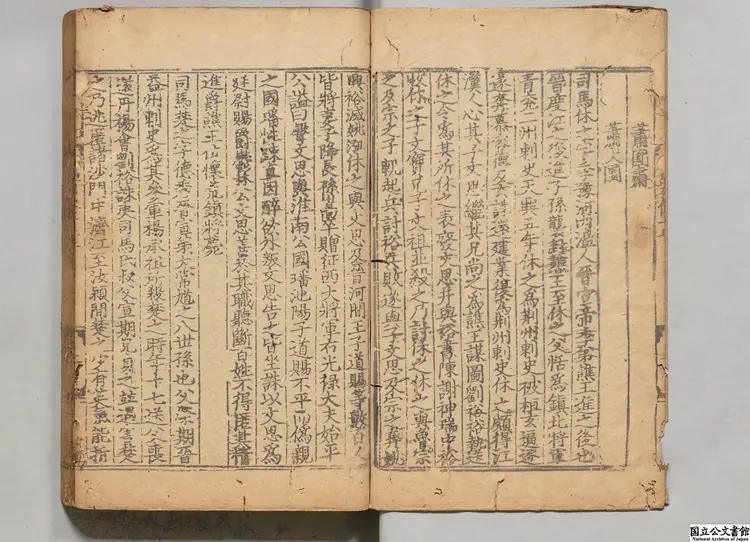 蕭圓肅
蕭大圜
司馬休之字季豫河內溫人晉宣帝季弟譙王進之後也
晉度江之後進子孫襲封譙王至休之父恬為鎮北將軍
青兗二州刺史天興五年休之為荆州刺史被桓玄逼逐
遂奔慕容德及玄誅還建業復為荆州刺史休之頗得江
漢人心其子文思繼其兄尚之為譙王謀圖劉裕裕執送
休之令為其所休之表廢文思并與裕書陳謝神瑞中裕
收休之子文寶兄子文祖並殺之乃討休之休之與魯宗
之及宗之子軌起兵討裕兵敗遂與子文思及宗之等奔姚
興裕滅姚泓休之與文思及晉河間王子道賜等數百人
皆將妻子降長孫嵩卒贈征西大將軍右光祿大夫始平
公謚曰聲文思與淮南公國璠池陽子道賜不平而偽親
之國璠性疎直因醉欲外叛文思告之皆坐誅以文思為
廷尉賜爵鬱林公文思善於其職聽斷百姓不得匿其情
進爵譙王位懷荒鎮將薨
司馬楚之字德秀晉宣帝弟太常馗之八世孫也父榮期晉
益州刺史為其參軍楊承祖所殺楚之時年十七送父喪
還丹楊會劉裕誅夷司馬氏叔父宣期兄貞之並遇害楚
之乃逃匿諸沙門中濟江至汝潁間楚之少有英氣能折
国立公文書館
National Archives of Japan